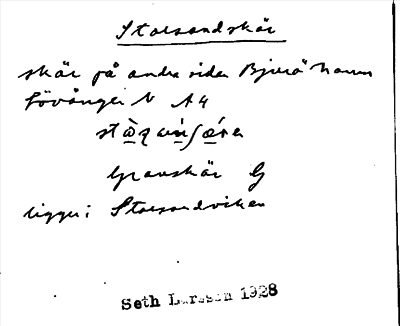 Storsandskär
skär på andra sidan Bjurö hamn
Lövånger N A4
Granskär G
ligger i Storsandviken
Seth Larsson 1928